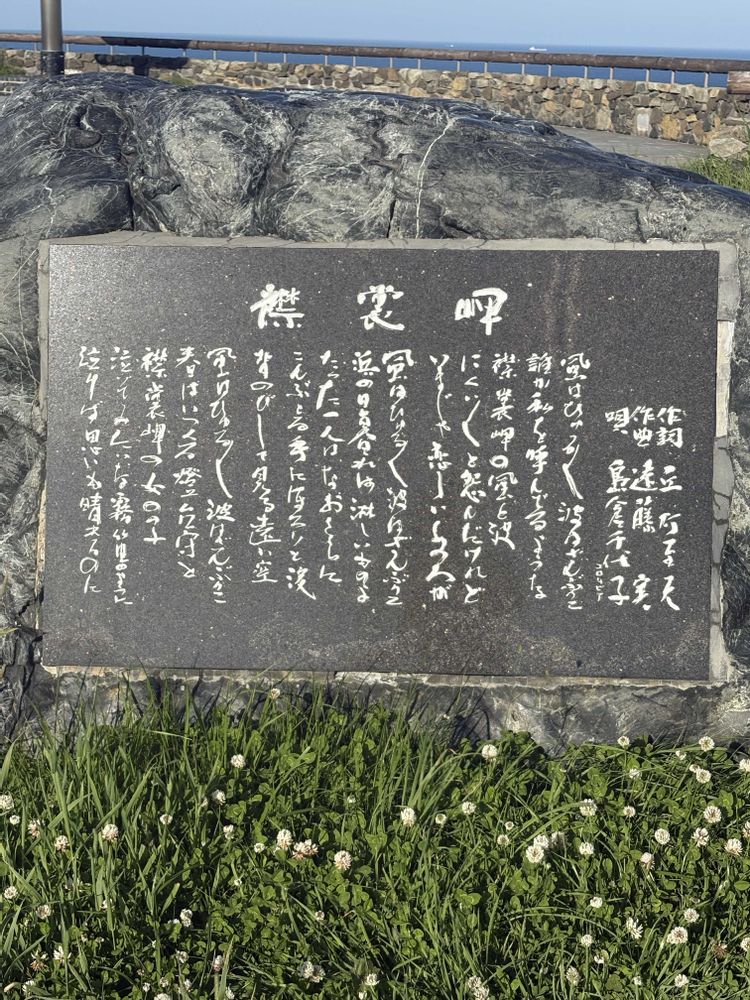 襟裳岬
作詞 丘灯至夫
作曲 遠藤 実
唄 島倉千代子
コロムビア
風はひゅる〱 波はざんぶりこ
誰か私を呼んでるような
襟裳岬の風と波
にくい〱と怨んだけれど
いまじゃ恋しいあの人が
風はひゅる〱 波はざんぶりこ
浜の日暮れは淋しいものよ
たった一人はなおさらに
こんぶとる手にほろりと涙
背のびして見る遠い空
風はひゅる〱 波はざんぶりこ
春はいつくる燈台守と
襟裳岬の女の子
泣いてみたいな霧笛のように
泣けば思いも晴れるのに